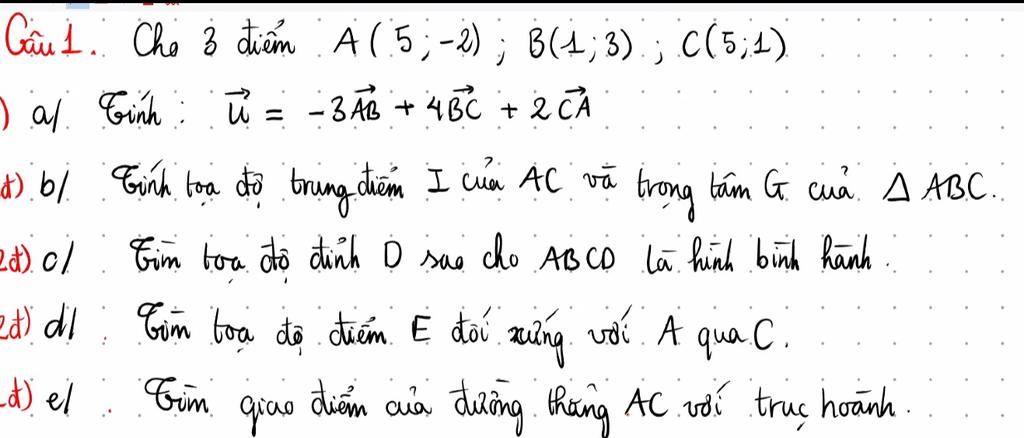 Câu 1. Cho 3 điểm A(5;-2); B(1;3); C(5;1)
) a/ Tính: u⃗ = -3AB⃗ + 4BC⃗ + 2CA⃗
đ) b/ Tính tọa độ trung điểm I của AC và trọng tâm G của Δ ABC.
2đ) c/ Tìm tọa độ đỉnh D sao cho ABCD là hình bình hành.
2đ) d/ Tìm tọa độ điểm E đối xứng với A qua C.
đ) e/ Tìm giao điểm của đường thẳng AC với trục hoành.